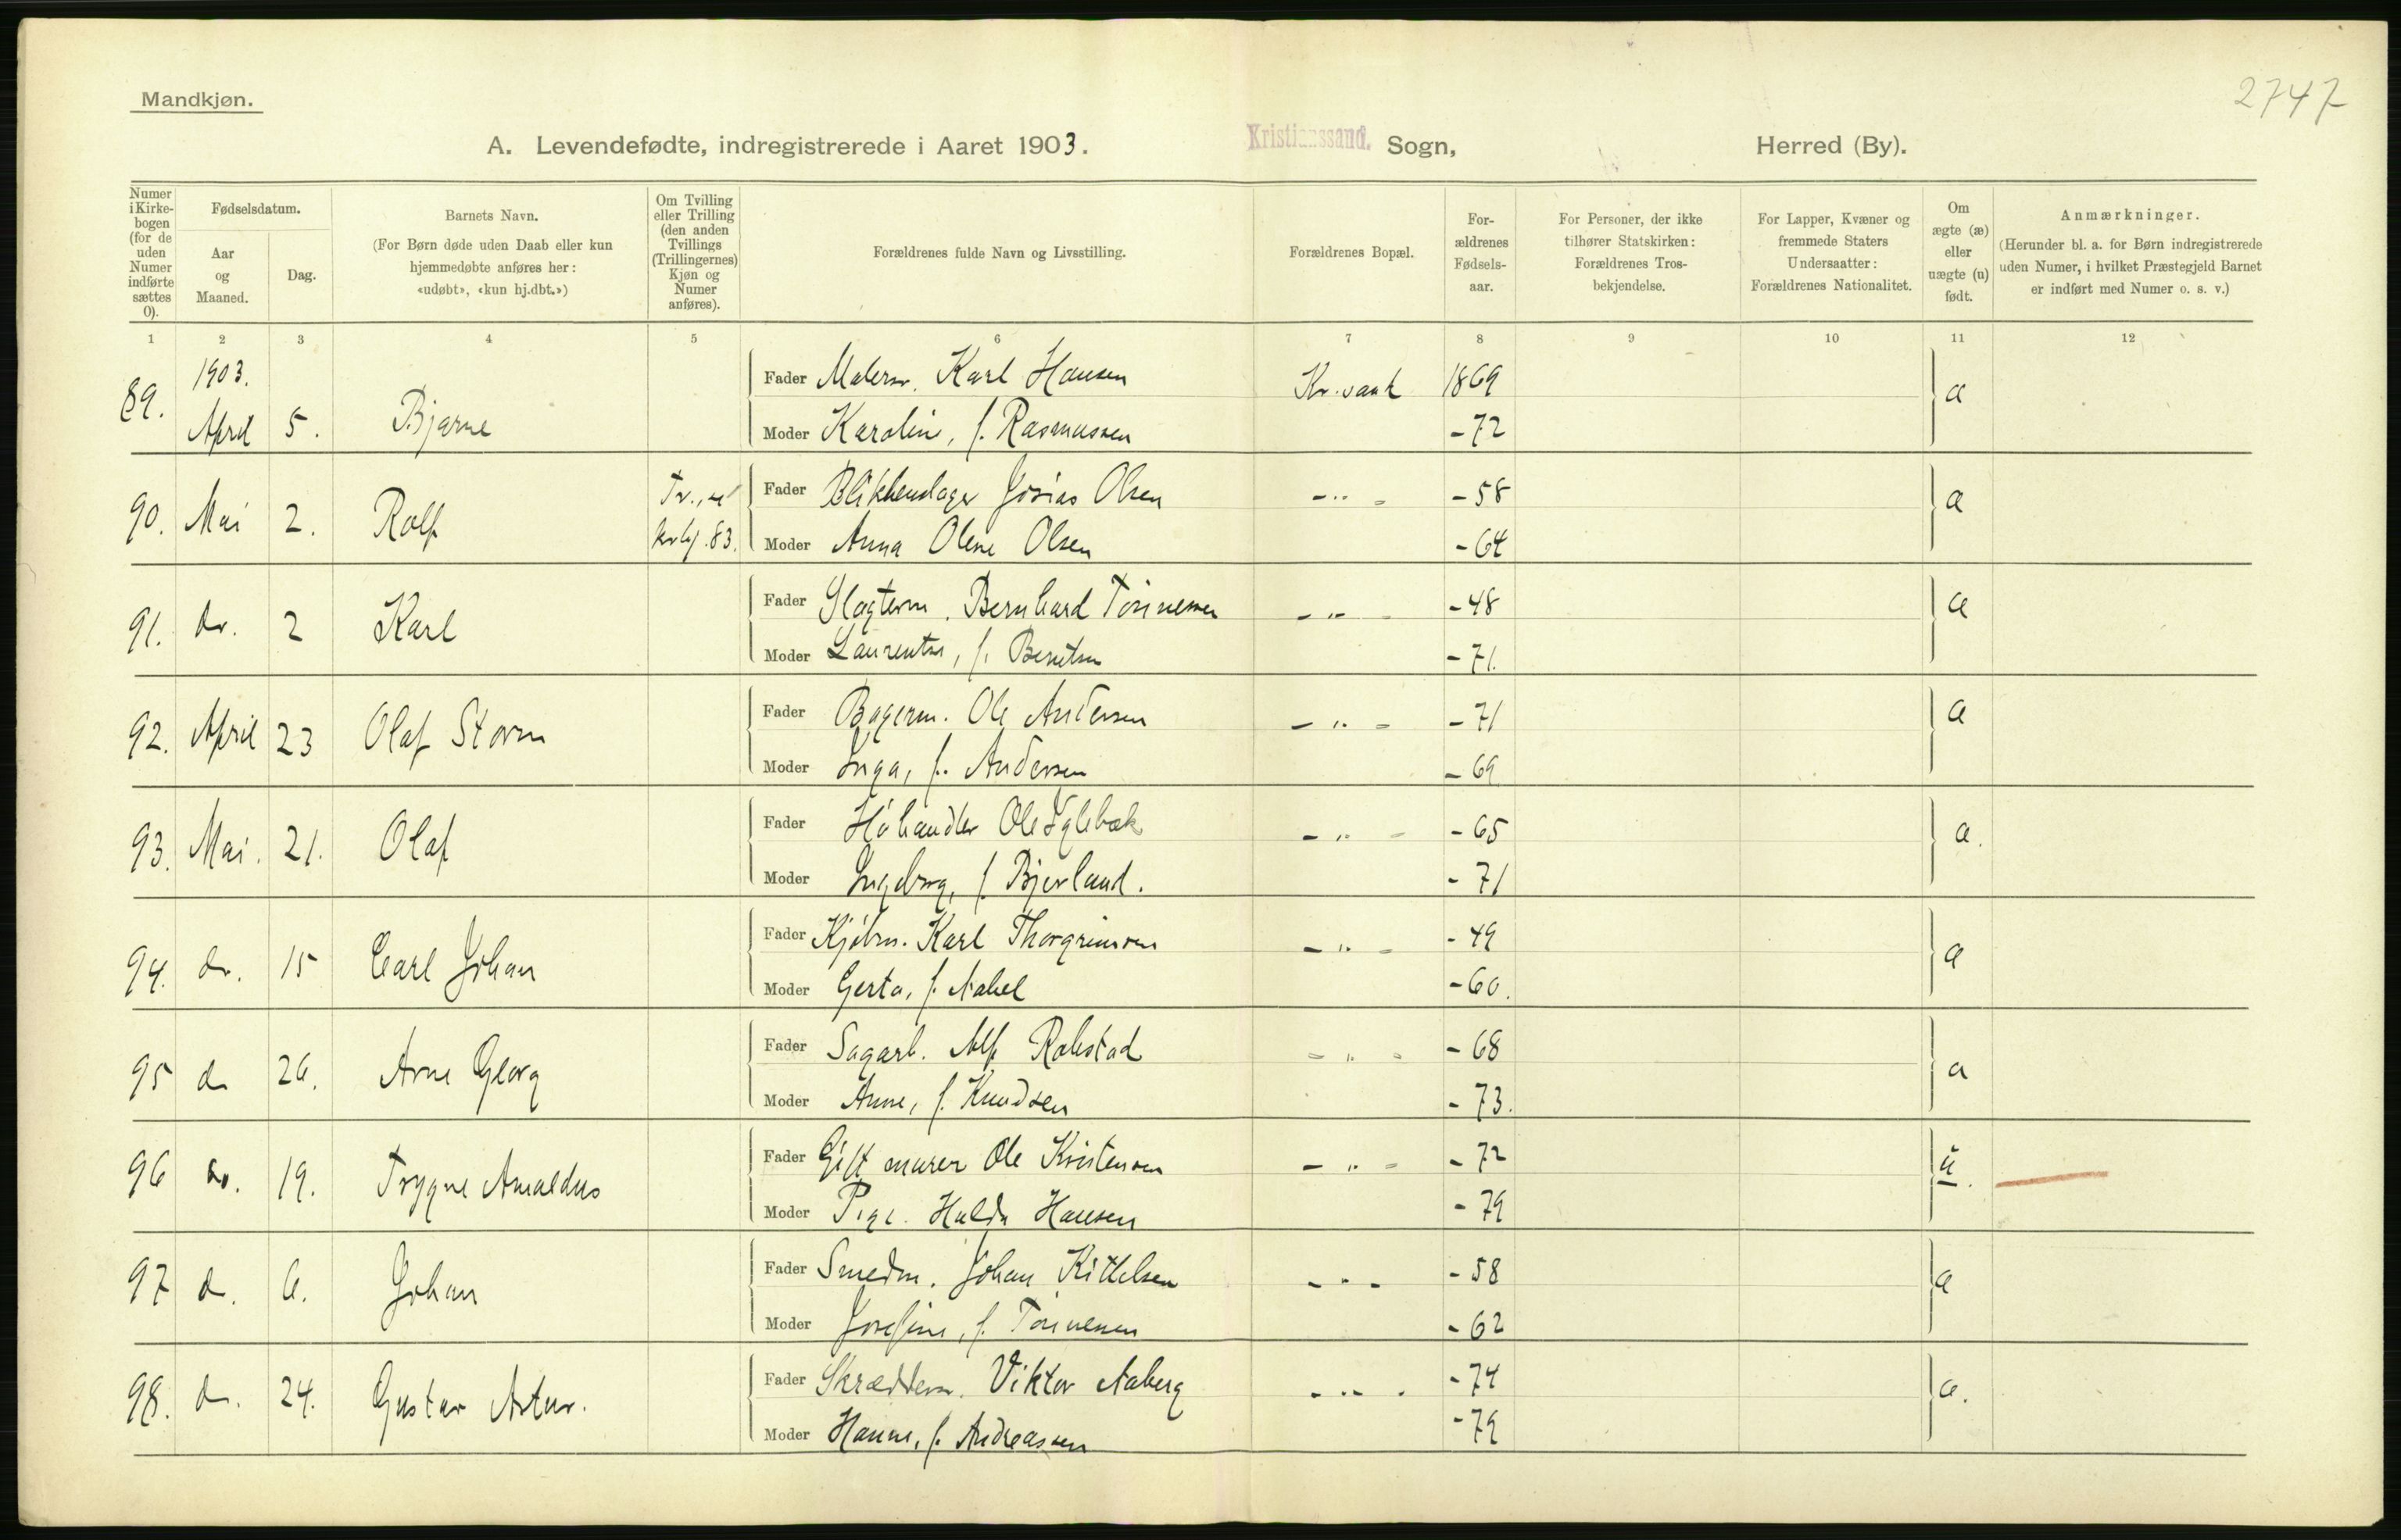 Mandkjøn.
2747
A. Levendefødte, indregistrerede i Aaret 1903. Kristianssand. Sogn, Herred (By).
Numer i Kirkebogen (for de uden Numer indførte sættes 0).
Fødselsdatum.
Aar og Maaned.
Dag.
Barnets Navn.
(For Børn døde uden Daab eller kun hjemmedøbte anføres her: «udøbt», «kun hj.dbt.»)
Om Tvilling eller Trilling (den anden Tvillings (Trillingernes) Kjøn og Numer anføres).
Forældrenes fulde Navn og Livsstilling.
Forældrenes Bopæl.
Forældrenes Fødselsaar.
For Personer, der ikke tilhører Statskirken: Forældrenes Trosbekjendelse.
For Lapper, Kvæner og fremmede Staters Undersaatter: Forældrenes Nationalitet.
Om ægte (æ) eller uægte (u) født.
Anmærkninger.
(Herunder bl. a. for Børn indregistrerede uden Numer, i hvilket Præstegjeld Barnet er indført med Numer o. s. v.)
1 2 3 4 5 6 7 8 9 10 11 12
1903.
89. April 5. Bjarne Fader Malerm. Karl Hansen Kr.sand 1869 æ
Moder Karoline, f. Rasmussen - 72
90. Mai 2. Rolf Tv., Fader Blikkenslager Josias Olsen - " - - 58 æ
83. Moder Anna Olene Olsen - 64
91. do. 2 Karl Fader Slagterm. Bernhard Tønnesen - " - - 48 æ
Moder Laurentse, f. Berntsen - 71.
92. April 23 Olaf Storm Fader Bagerm. Ole Andersen - " - - 71 æ
Moder Inga, f. Andersen - 69
93. Mai. 21. Olaf Fader Høhandler Ole - " - - 65 æ.
Moder Ingeborg, f. Bjerland. - 71
94. do. 15 Carl Johan Fader Kjøbm. Karl Thorgrimsen - " - - 49 æ
Moder Gerta, f. Aabel - 60.
95 do 26. Arne Georg Fader Sagarb. Alf Robstad - " - - 68 æ
Moder Anne, f. Knudsen - 73.
96 do. 19. Trygve Arnaldus Fader Gift murer Ole Kristensen - " - - 72 u.
Moder Pige. Hulda Hansen - 79
97 do. 6. Johan Fader Smedm. Johan Kittelsen - " - - 58 æ
Moder Josefine, f. Tønnesen - 62
98. do. 24. Gustav Artur. Fader Skrædderm. Viktor Aaberg - " - - 74 æ.
Moder Hanne, f. Andreassen - 79